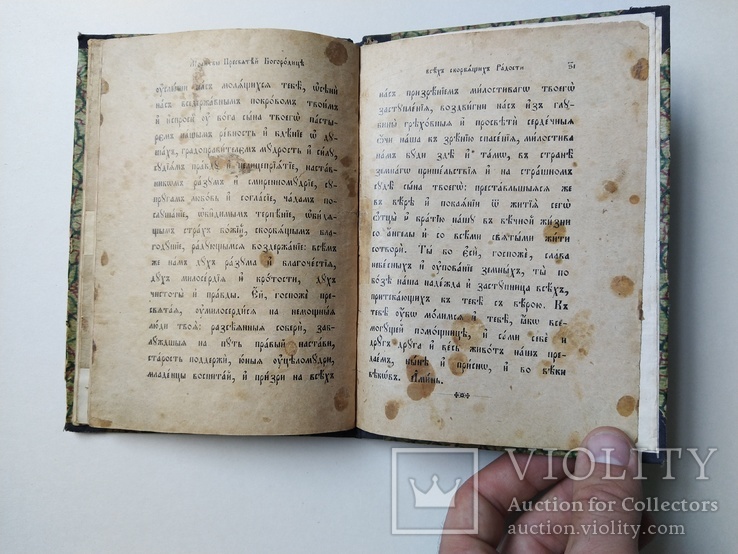 Пресвятѣй Богородицѣ
оуслыши нас молящихся тебѣ, ѡсѣни
нас вседержавным покровом твоим
и испроси оу бога сына твоего пасты-
рем нашым ревность и бдѣнїе ѡ ду-
шах, градоправителем мудрость и силу,
судїям правду и нелицепрїятїе, настав-
ником разум и смиренномудрїе, су-
пругам любовь и согласїе, чадам по-
слушанїе, ѡбидимым терпѣнїе, ѡбидя-
щым страх божїй, скорбящым благ-
одушїе, радующымся воздержанїе: всѣм
же нам дух разума и благочестїя,
дух милосердїя и кротости, дух
чистоты и правды. Ей, госпоже пре-
святая, оумилосердися на немощныя
люди твоя: разсѣянныя собери, заб-
луждшыя на путь правый настави,
старость поддержи, юныя оуцѣломудри,
младенцы воспитай, и призри на всѣх
всѣхъ скорбящихъ Радости
нас призрѣнїем милостиваго твоегѡ
заступленїя, воздвигни нас из глу-
бины грѣховныя и просвѣти сердечныя
ѻчи наша к зрѣнїю спасенїя, милостива
нам буди здѣ и тамѡ, в странѣ
земнагѡ пришельствїя и на страшном
судѣ сына твоегѡ: преставльшыяся же
в вѣрѣ и покаянїи ѿ житїя сегѡ
ѻтцы и братїю нашу в вѣчной жизни
со ангелы и со всѣми святыми жити
сотвори. Ты бо еси, госпоже, слава
небесных и оупованїе земных, ты по
бозѣ наша надежда и заступница всѣх,
притекающих к тебѣ с вѣрою. К
тебѣ оубѡ молимся и тебѣ, якѡ все-
могущей помощницѣ, и сами себе и
друг друга и весь живот наш пре-
даем, нынѣ и присно, и во вѣки
вѣкѡв. Аминь.
VIOLITY
Auction for Collectors
auction.violity.com